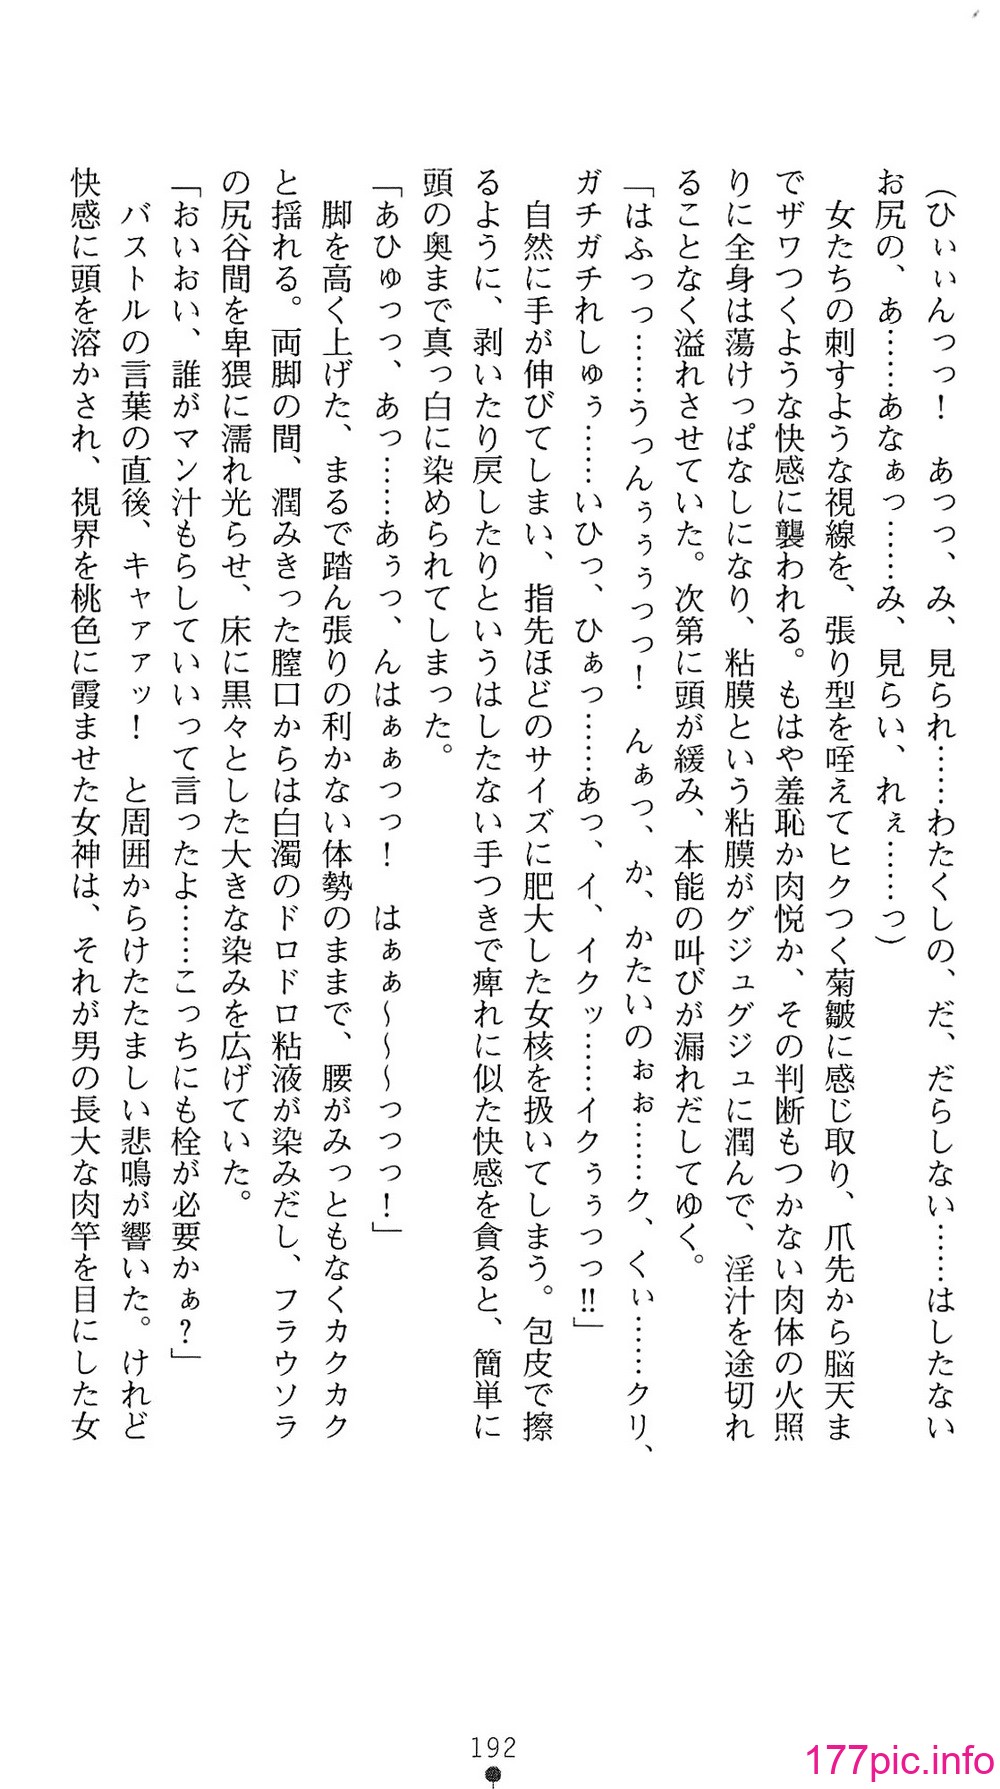 (ひぃぃんっっ！　あっっ、み、見られ……わたくしの、だ、だらしない……はしたない
お尻の、あ……あなぁっ……み、見らい、れぇ……っ)
　女たちの刺すような視線を、張り型を咥えてヒクつく菊皺に感じ取り、爪先から脳天ま
でザワつくような快感に襲われる。もはや羞恥か肉悦か、その判断もつかない肉体の火照
りに全身は蕩けっぱなしになり、粘膜という粘膜がグジュグジュに潤んで、淫汁を途切れ
ることなく溢れさせていた。次第に頭が緩み、本能の叫びが漏れだしてゆく。
「はふっっ……うっんぅぅぅっっ！　んぁっ、か、かたいのぉぉ……ク、くぃ……クリ、
ガチガチれしゅぅ……いひっ、ひぁっ……あっ、イ、イクッ……イクぅぅっっ‼」
　自然に手が伸びてしまい、指先ほどのサイズに肥大した女核を扱いてしまう。包皮で擦
るように、剥いたり戻したりというはしたない手つきで痺れに似た快感を貪ると、簡単に
頭の奥まで真っ白に染められてしまった。
「あひゅっっ、あっ……あぅっ、んはぁぁっっ！　はぁぁ～～～っっっ！」
　脚を高く上げた、まるで踏ん張りの利かない体勢のままで、腰がみっともなくカクカク
と揺れる。両脚の間、潤みきった膣口からは白濁のドロドロ粘液が染みだし、フラウソラ
の尻谷間を卑猥に濡れ光らせ、床に黒々とした大きな染みを広げていた。
「おいおい、誰がマン汁もらしていいって言ったよ……こっちにも栓が必要かぁ？」
　バストルの言葉の直後、キャァァッ！　と周囲からけたたましい悲鳴が響いた。けれど
快感に頭を溶かされ、視界を桃色に霞ませた女神は、それが男の長大な肉竿を目にした女
192
177pic.info